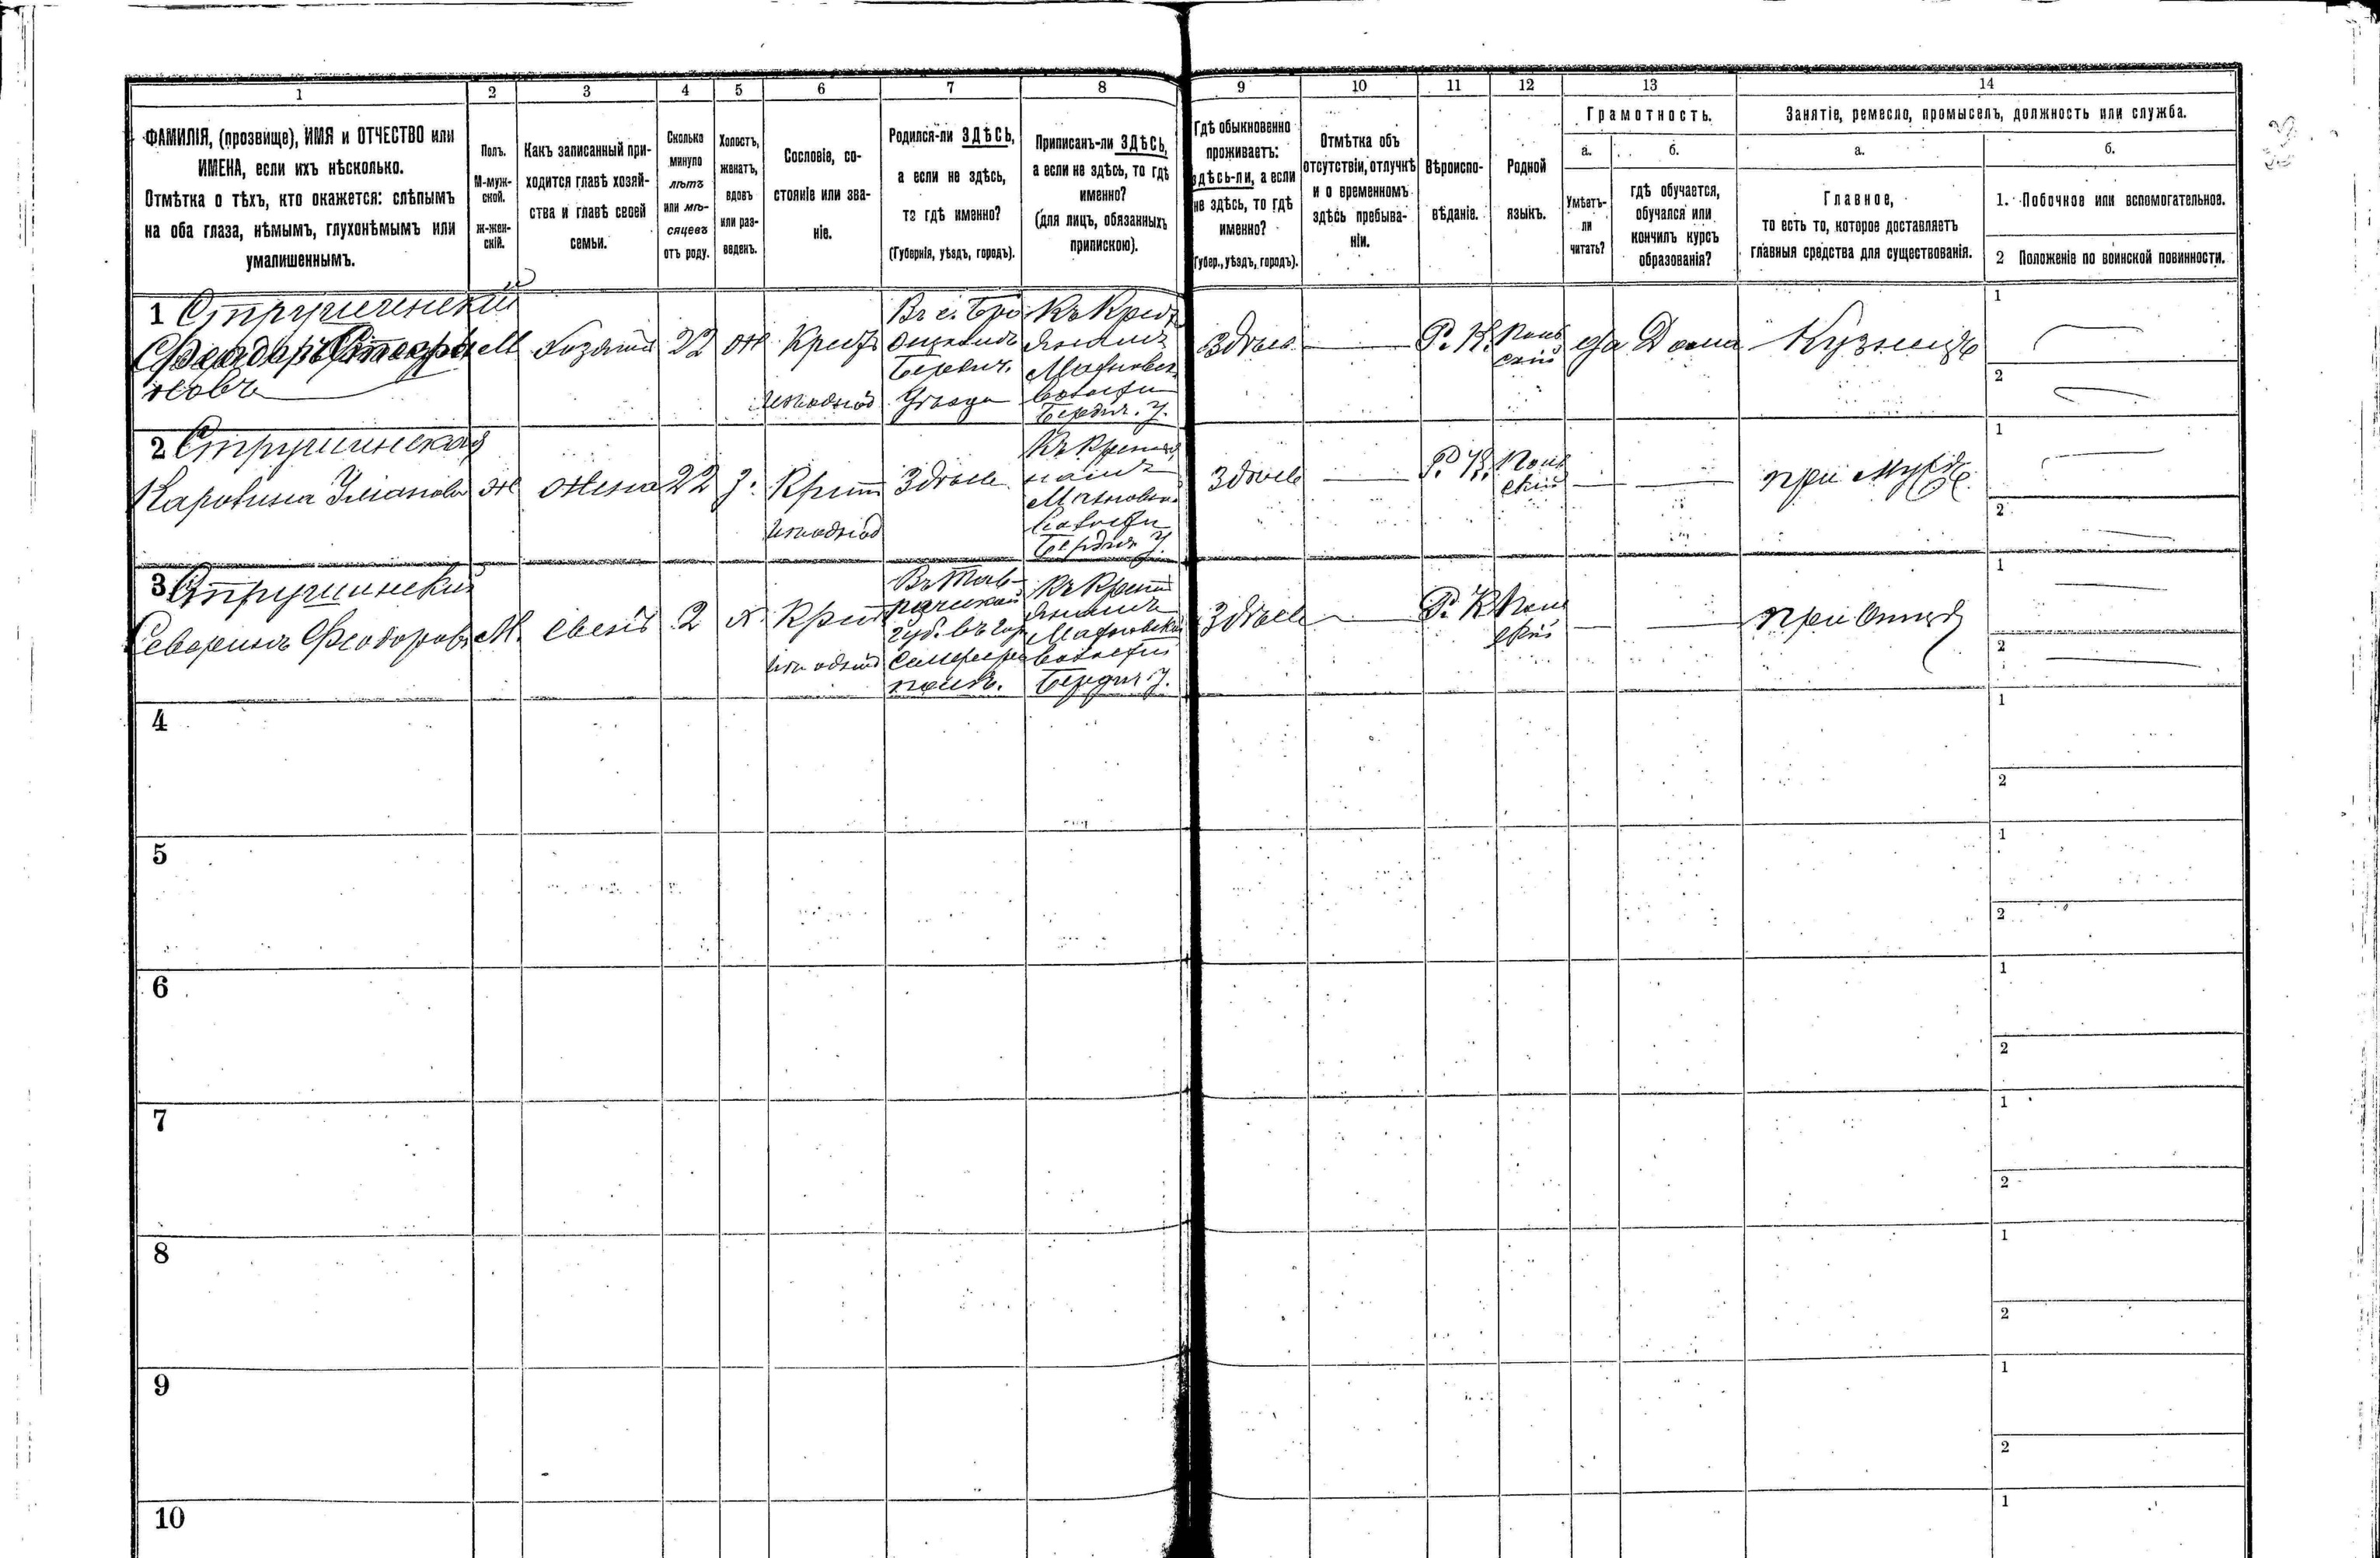 1 2 3 4 5 6 7 8 9 10 11 12 13 14
ФАМИЛІЯ, (прозвище), ИМЯ и ОТЧЕСТВО или
ИМЕНА, если ихъ нѣсколько.
Отмѣтка о тѣхъ, кто окажется: слѣпымъ
на оба глаза, нѣмымъ, глухонѣмымъ или
умалишеннымъ.
Полъ.
М-муж-
ской.
ж-жен-
скій.
Какъ записанный при-
ходится главѣ хозяй-
ства и главѣ своей
семьи.
Сколько
минуло
лѣтъ
или мѣ-
сяцевъ
отъ роду.
Холостъ,
женатъ,
вдовъ
или раз-
веденъ.
Сословіе, со-
стояніе или зва-
ніе.
Родился-ли ЗДѢСЬ,
а если не здѣсь,
то гдѣ именно?
(Губернія, уѣздъ, городъ).
Приписанъ-ли ЗДѢСЬ,
а если не здѣсь, то гдѣ
именно?
(для лицъ, обязанныхъ
припискою).
Гдѣ обыкновенно
проживаетъ:
здѣсь-ли, а если
не здѣсь, то гдѣ
именно?
(Губер., уѣздъ, городъ).
Отмѣтка объ
отсутствіи, отлучкѣ
и о временномъ
здѣсь пребыва-
ніи.
Вѣроиспо-
вѣданіе.
Родной
языкъ.
Грамотность.
а.
Умѣетъ-
ли
читать?
б.
гдѣ обучается,
обучался или
кончилъ курсъ
образованія?
Занятіе, ремесло, промыселъ, должность или служба.
а.
Главное,
то есть то, которое доставляетъ
главныя средства для существованія.
б.
1. Побочное или вспомогательное.
2 Положеніе по воинской повинности.
1 Струшинскій
новъ
М
22
ж
Бердич.
Уѣзда
Бердич. у.
здѣсь
Р. К.
Поль
скій
да
Дома
Кузнецъ
1
2
2 Струшинская
ж
жена
22
з.
Крест
Здѣсь
Бердич у.
Здѣсь
Р. К.
Поль
скій
при мужѣ
1
2
3 Струшинскій
Северинъ Феодоровъ
М.
сынъ
2
х.
Крест
Въ Тав-
рической
губ. въ гор
Симферо
полѣ.
Бердич у.
Здѣсь
Р. К
Поль
скій
при отцѣ
1
2
4
1
2
5
1
2
6
1
2
7
1
2
8
1
2
9
1
2
10
1